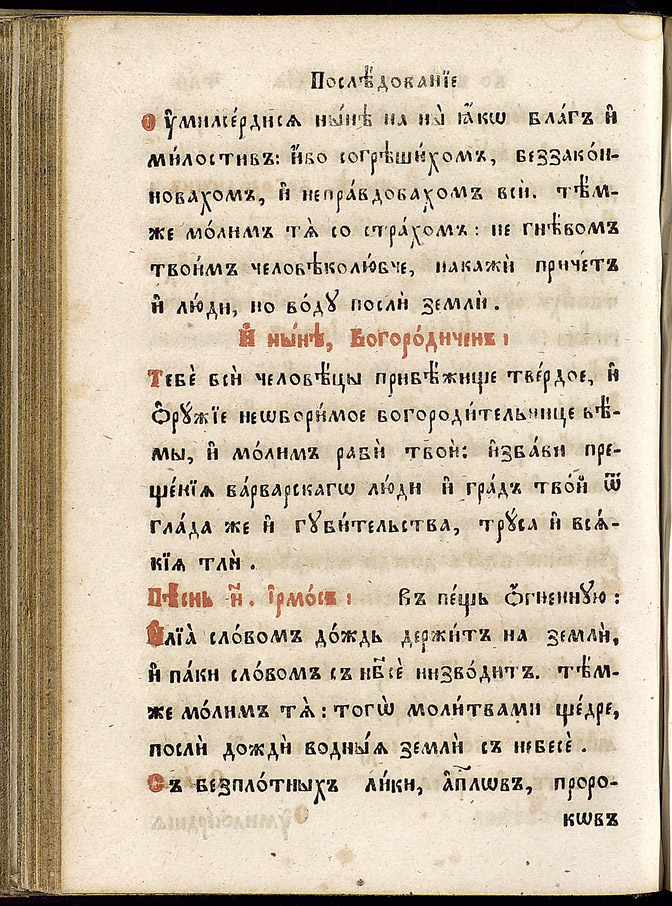 Послѣ́дованїе
Оу҆милсе́рдисѧ ны́нѣ на ны̀ ꙗ҆́кѡ бла́гъ и҆
ми́лостивъ: и҆́бо согрѣши́хомъ, беззако́н-
новахомъ, и҆ непра́вдовахомъ всѝ. тѣ́м-
же мо́лимъ тѧ̀ со стра́хомъ: не гнѣ́вомъ
твои́мъ человѣколю́бче, накажѝ при́четъ
и҆ лю́ди, но во́дꙋ послѝ землѝ.
И҆ ны́нѣ, Богоро́диченъ:
Тебѐ всѝ человѣ́цы прибѣ́жище тве́рдое, и҆
Ѻ҆рꙋ́жїе неѡбори́мое богороди́тельнице вѣ́-
мы, и҆ мо́лимъ рабѝ твоѝ: и҆зба́ви пре-
ще́нїѧ ва́рварскагѡ лю́ди и҆ гра́дъ тво́й ѿ
гла́да же и҆ гꙋби́тельства, трꙋ́са и҆ всѧ́-
кїѧ тлѝ.
Пѣ́снь и҃. І҆рмо́съ: Въ пе́щь ѻ҆́гненнꙋю:
И҆лїа̀ сло́вомъ до́ждь держи́тъ на землѝ,
и҆ па́ки сло́вомъ съ нб҃сѐ низво́дитъ. тѣ́м-
же мо́лимъ тѧ̀: тогѡ̀ моли́твами ще́дре,
послѝ дождѝ водны́ѧ землѝ съ небесѐ.
Съ безпло́тныхъ ли́ки, а҆п҃лѡвъ, проро-
кѡвъ